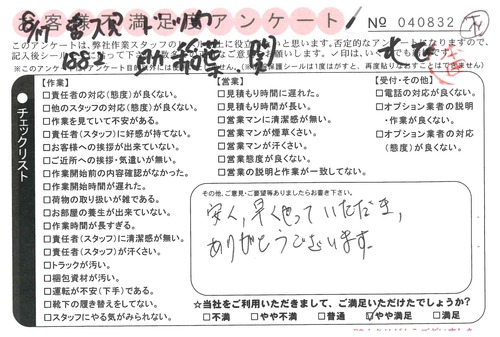 お客様不満足度アンケート
No 040832
このアンケートは、弊社作業スタッフの
に役立
いと思います。否定的なアンケート
になりますので、
※このアンケートは
保護シールは1度はがすと、再度貼りなおすことはできません)
チェックリスト
【作業】
□責任者の対応(態度)が良くない。
□他のスタッフの対応(態度)が良くない。
□作業を見ていて不安がある。
□責任者(スタッフ)に好感が持てない。
□お客様への挨拶が出来ていない。
□ご近所への挨拶・気遣いが無い。
□作業開始前の内容確認がなかった。
□作業開始時間が遅れた。
□荷物の取り扱いが雑である。
□お部屋の養生が出来ていない。
□作業時間が長すぎる。
□責任者(スタッフ)に清潔感が無い。
□責任者(スタッフ)が汗くさい。
□トラックが汚い。
□梱包資材が汚い。
□運転が不安(下手)である。
□靴下の履き替えをしてない。
□スタッフにやる気がみられない。
【営業】
□見積もり時間に遅れた。
□見積もり時間が長い。
□営業マンに清潔感が無い。
□営業マンが煙草くさい。
□営業マンが汗くさい。
□営業態度が良くない。
□営業の説明と作業が一致してない。
【受付・その他】
□電話の対応が良くない。
□オプション業者の説明
・作業が良くない。
□オプション業者の対応
(態度)が良くない。
その他、ご意見・ご要望等ありましたらお書き下さい。
安く、早くやっていただき、
ありがとうございます。
☆当社をご利用いただきまして、ご満足いただけたでしょうか?
□不満 □やや不満 □普通 ☑やや満足 □満足